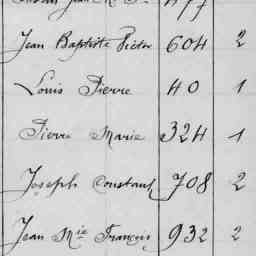 Jean Baptiste Victor 604 2
Louis Pierre 40 1
Pierre Marie 324 1
Joseph Constant 708 2
Jean Mie François 932 2